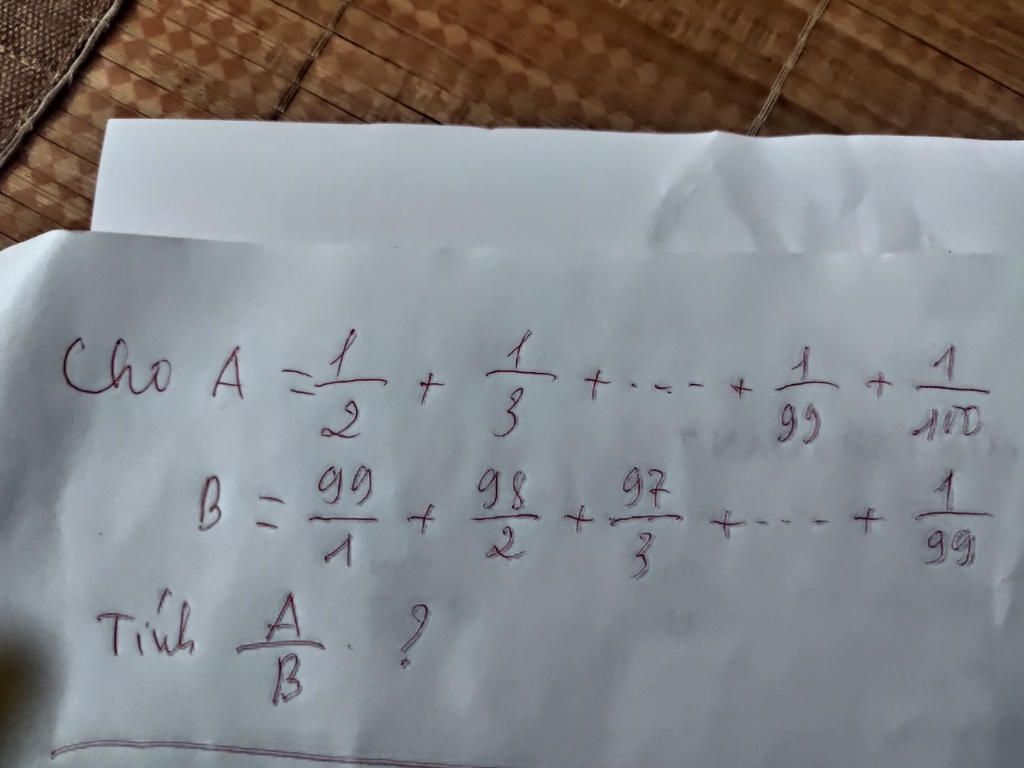 Cho A = 1/2 + 1/3 + .... + 1/99 + 1/100
B = 99/1 + 98/2 + 97/3 + .... + 1/99
Tính A/B . ?